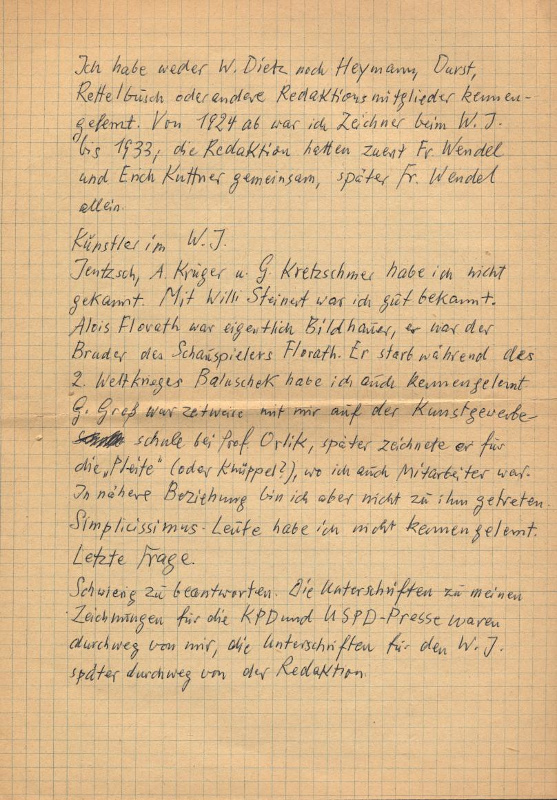 Ich habe weder W. Dietz noch Heymann, Durst,
Rettelbusch oder andere Redaktionsmitglieder kennen-
gelernt. Von 1924 ab war ich Zeichner beim W. J.
bis 1933, die Redaktion hatten zuerst Fr. Wendel
und Erich Kuttner gemeinsam, später Fr. Wendel
allein.
Künstler im W. J.
Jentzsch, A. Krüger u. G. Kretzschmer habe ich nicht
gekannt. Mit Willi Steinert war ich gut bekannt.
Alois Florath war eigentlich Bildhauer, er war der
Bruder des Schauspielers Florath. Er starb während des
2. Weltkrieges Baluschek habe ich auch kennengelernt
G. Groß war zeitweise mit mir auf der Kunstgewerbe
schule bei Prof. Orlik, später zeichnete er für
die „Pleite" (oder Knüppel?), wo ich auch Mitarbeiter war.
In nähere Beziehung bin ich aber nicht zu ihm getreten.
Simplicissimus-Leute habe ich nicht kennengelernt.
Letzte Frage.
Schwierig zu beantworten. Die Unterschriften zu meinen
Zeichnungen für die KPD und USPD-Presse waren
durchweg von mir, die Unterschriften für den W. J.
später durchweg von der Redaktion.